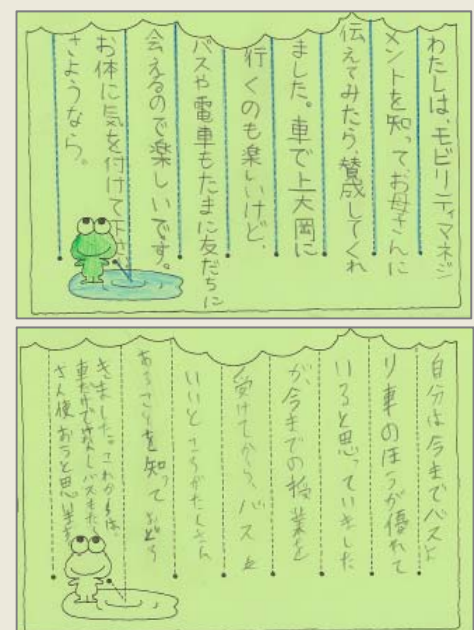 わたしは、モビリティマネジ
メントを知ってお母さんに
伝えてみたら、賛成してくれ
ました。車で上大岡に
行くのも楽しいけど、
バスや電車もたまに友だちに
会えるので楽しいです。
お体に気を付けて下さい
さようなら。
自分は今までバスよ
り車のほうが優れて
いると思っていました
が、今までの授業を
受けてから、バスも
いいところがたくさん
あることを知っておどろ
きました。これからは、
車だけでなくバスもたく
さん使おうと思います